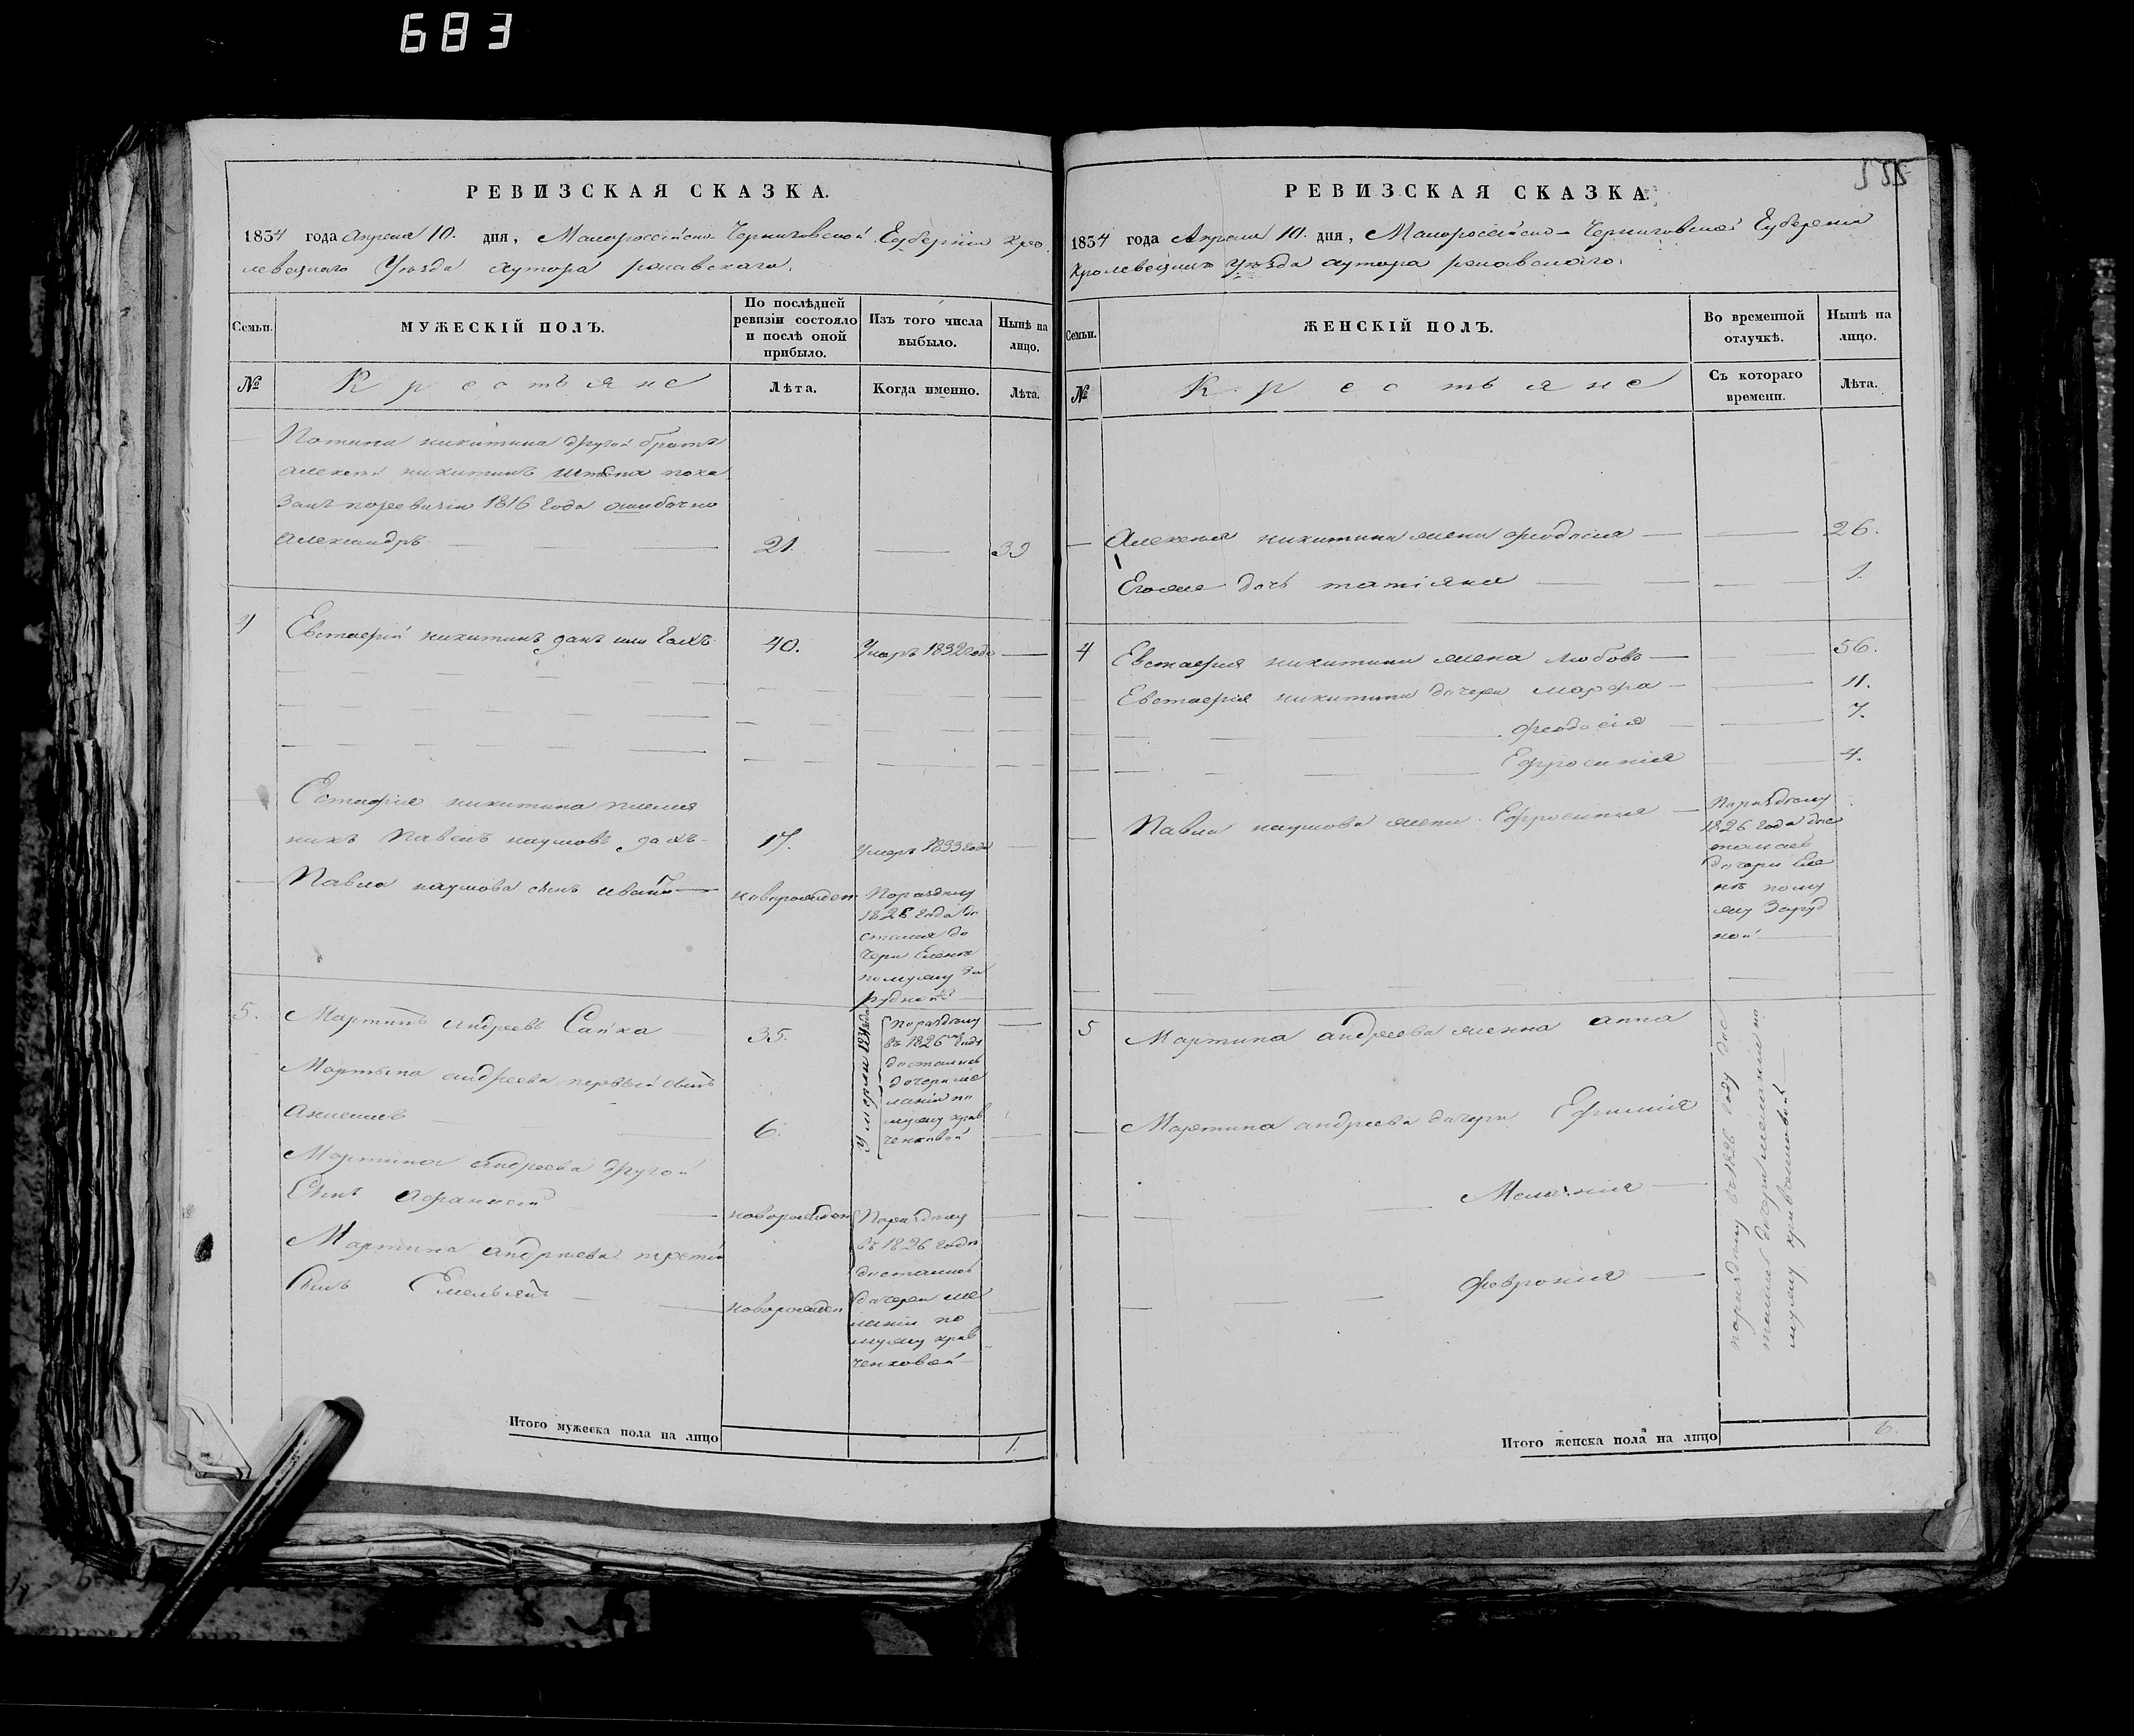 683
РЕВИЗСКАЯ СКАЗКА.
1834 года Апреля 10. дня, Малороссійско-Черниговской Губерніи Кро
левецкаго Уѣзда хутора
Семьи.
МУЖЕСКІЙ ПОЛЪ.
По послѣдней ревизіи состояло и послѣ оной прибыло.
Изъ того числа выбыло.
Нынѣ на лицо.
№
Крестьяне
Лѣта.
Когда именно.
Лѣта.
никитина другой братъ
алексей никитинъ пока
занъ поревизіи 1816 года ошибочно
Александръ 21. 39
4 Евстафій никитинъ 40. Умеръ 1832 года
Евстафія никитина племя
никъ Павелъ наумовъ 17. Умеръ 1833 года
Павла наумова сынъ иванъ новорожден Поразделу
1826 года до
стался до
чери Елене
помужу За
рудной
5. Мартинъ андреевъ Сапка 35.
Мартына андреева первый сынъ
6.
Умерли
Поразделу
въ 1826 годе
достались
дочери ме
ланіи по
мужу крав
ченковой
Мартина андреева другой
Сынъ Афанасей новорожден
Мартина андреева третій
Сынъ Емельянъ новорожден
Поразделу
въ 1826 годе
достались
дочери ме
ланіи по
мужу крав
ченковой
Итого мужеска пола на лицо 1.
РЕВИЗСКАЯ СКАЗКА.
1834 года Апреля 10. дня, Малороссійско-Черниговской Губерніи
Кролевецкаго уѣзда хутора
Семьи.
ЖЕНСКІЙ ПОЛЪ.
Во временной отлучкѣ.
Нынѣ на лицо.
№
Крестьяне
Съ котораго времени.
Лѣта.
Алексея никитина жена феодосія 26.
Егоже дочь татіяна 1.
4 Евстафія никитина жена любовь 56.
Евстафія никитина дочери марфа 11.
феодосія 7.
Ефросинія 4.
Павла наумова жена Ефросинія
Поразделу
1826 года дос
талась
дочери Еле
не пому
жу Заруд
ной
5 Мартина андреева женна анна
Мартина андреева дочери Ефимія
Меланія
Февронія
поразделу въ 1826 году дос
тались дочери меланіи по
мужу кравченковой
Итого женска пола на лицо 6.